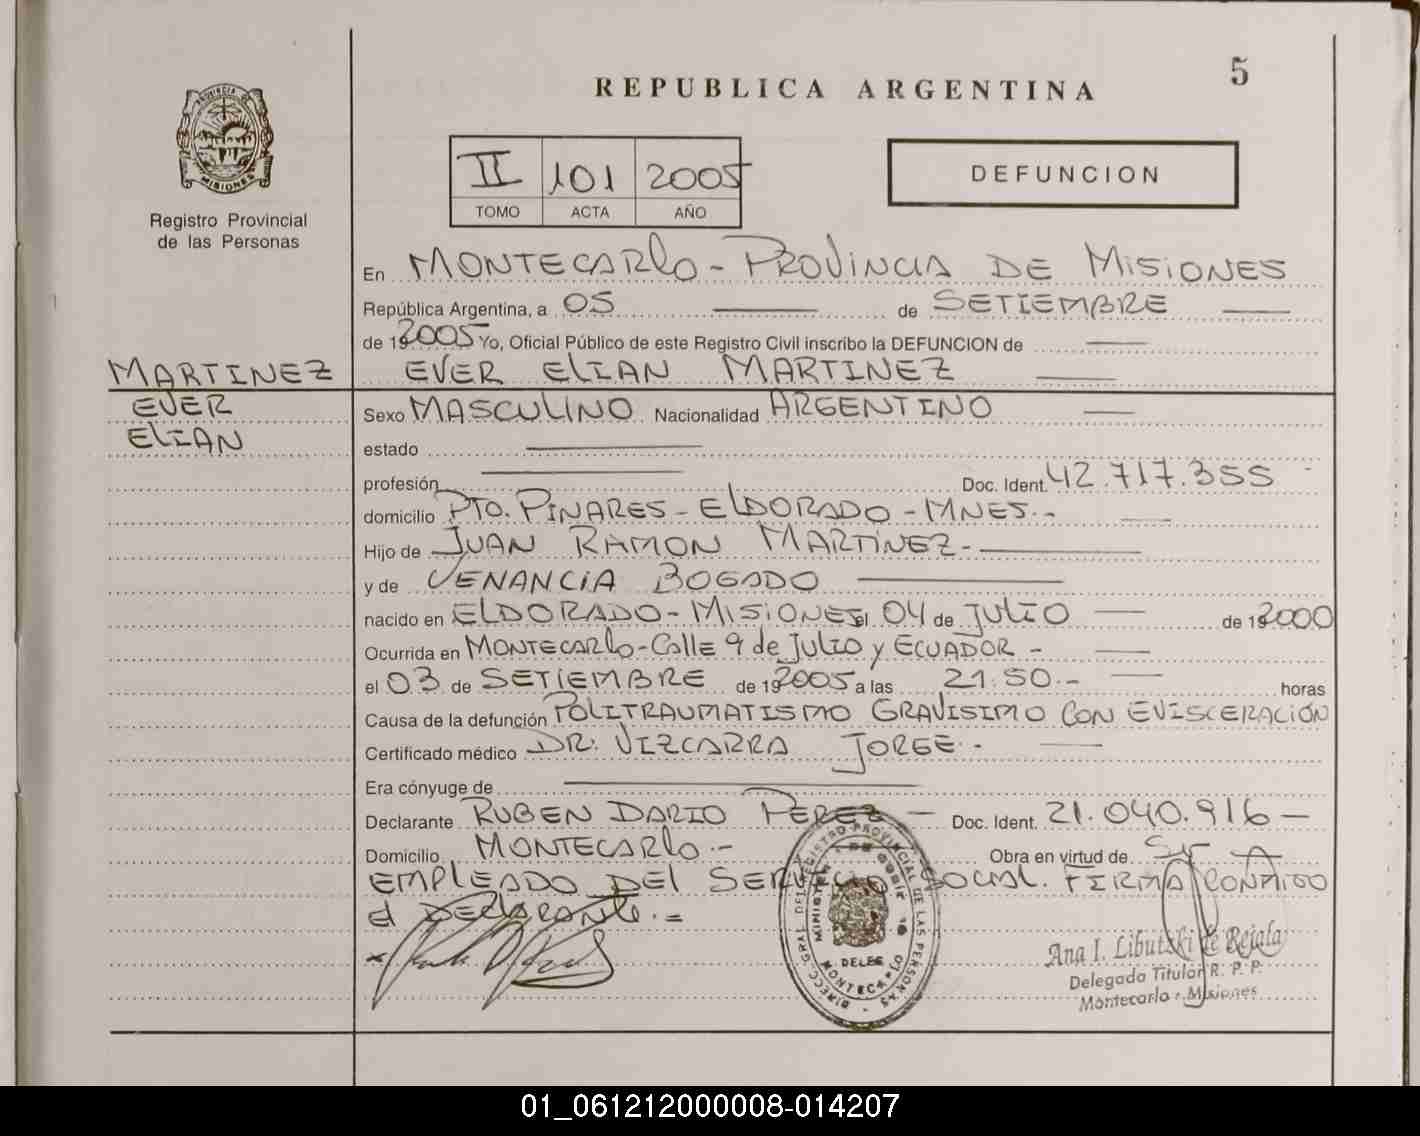 5
REPUBLICA ARGENTINA
PROVINCIA DE
MISIONES
Registro Provincial
de las Personas
II 101 2005
TOMO ACTA AÑO
DEFUNCION
En MONTECARLO - PROVINCIA DE MISIONES
República Argentina, a 05 de SETIEMBRE
de 192005 Yo, Oficial Público de este Registro Civil inscribo la DEFUNCION de
MARTINEZ
EVER
ELIAN
EVER ELIAN MARTINEZ
Sexo MASCULINO Nacionalidad ARGENTINO
estado
profesión Doc. Ident. 42.717.355
domicilio PTO. PINARES - ELDORADO - MNES.-
Hijo de JUAN RAMON MARTINEZ -
y de VENANCIA BOGADO
nacido en ELDORADO - MISIONES el 04 de JULIO de 192000
Ocurrida en MONTECARLO - Calle 9 de Julio y ECUADOR -
el 03 de SETIEMBRE de 192005 a las 21.50.- horas
Causa de la defunción POLITRAUMATISMO GRAVISIMO CON EVISCERACIÓN
Certificado médico DR. VIZCARRA JORGE.-
Era cónyuge de
Declarante RUBEN DARIO PEREZ - Doc. Ident. 21.040.916 -
Domicilio MONTECARLO.- Obra en virtud de
EMPLEADO DEL SERVICIO SOCIAL. FIRMA CONMIGO
el DECLARANTE.=
DIRECC. GRAL. DEL REGISTRO PROVINCIAL DE LAS PERSONAS
MONTECARLO
Ana I. Libutzki de Rejala
Delegada Titular R. P. P.
Montecarlo - Misiones
01_061212000008-014207